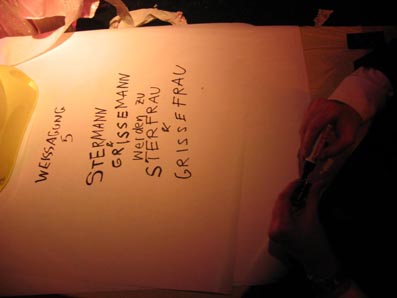 WEISSAGUNG
5
STERMANN
&
GRISSEMANN
werden zu
STERFRAU
&
GRISSEFRAU